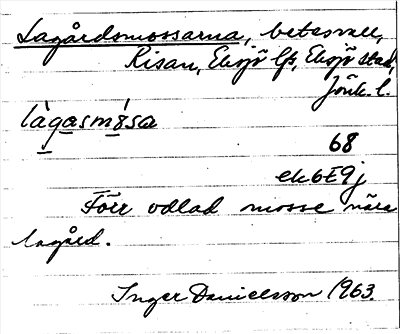 Lagårdsmossarna, betesvall,
Risan, Eksjö lfs, Eksjö stad,
Jönk. l.
làgasmǿsa
68
ek6E9j
Förr odlad mosse nära
lagård.
Inger Danielsson 1963.